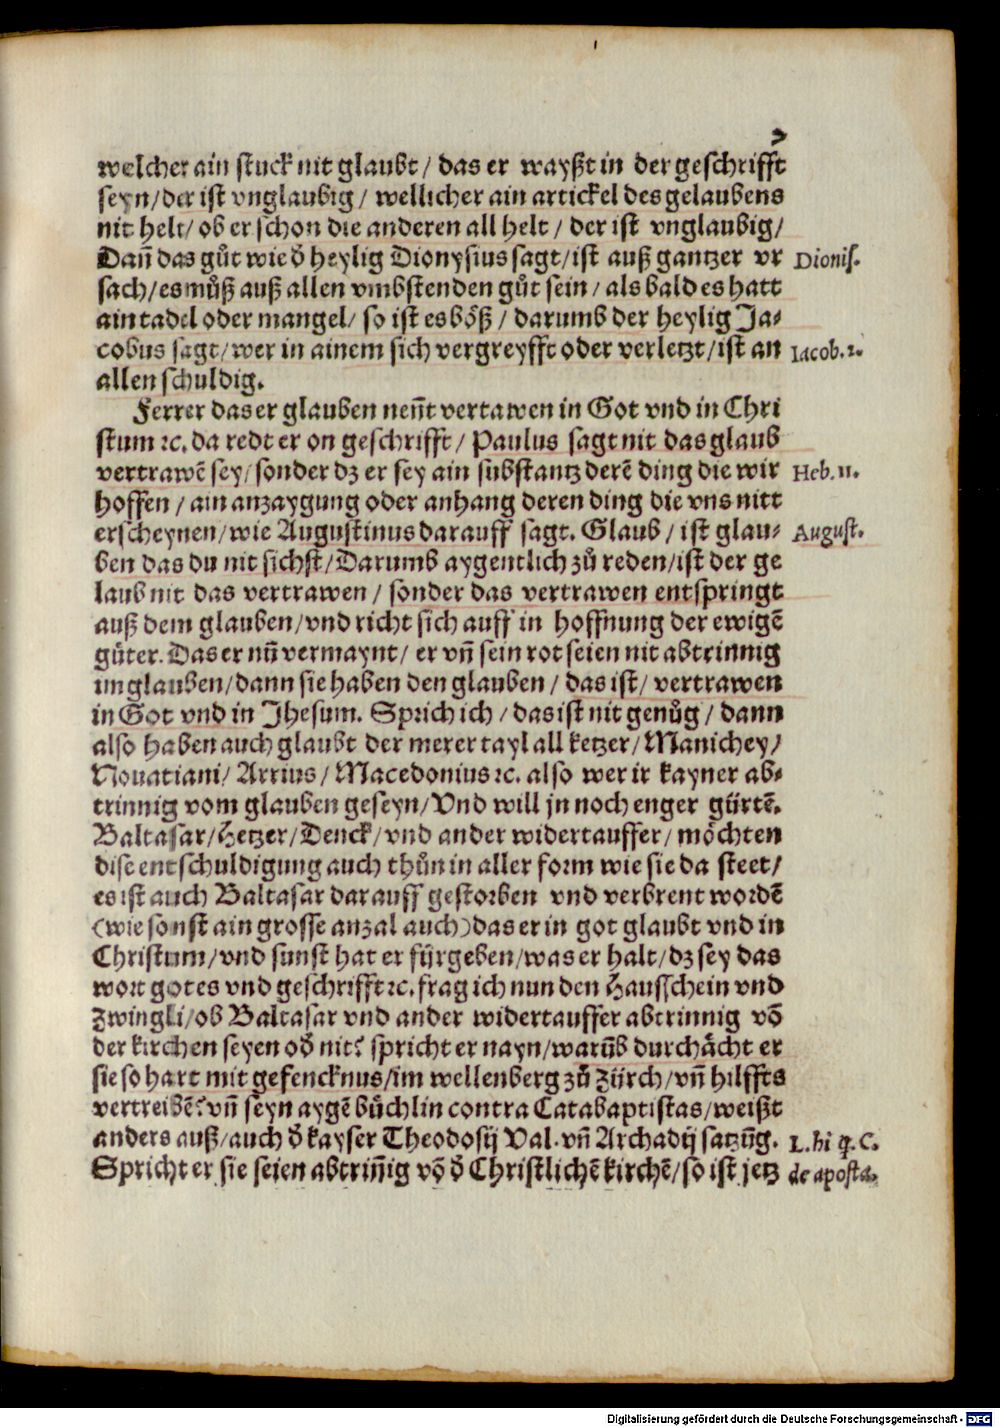 welcher ain stuck nit glaubt / das er wayßt in der geschrifft
seyn / der ist vnglaubig / wellicher ain artickel des gelaubens
nit helt / ob er schon die anderen all helt / der ist vnglaubig /
Dañ das gůt wie d̄ heylig Dionysius sagt / ist auß gantzer vr
Dionis.
sach / es můß auß allen vmbstenden gůt sein / als bald es hatt
ain tadel oder mangel / so ist es böß / darumb der heylig Ja⸗
cobus sagt / wer in ainem sich vergreyfft oder verletzt / ist an
Iacob. 2.
allen schuldig.
Ferrer das er glauben neñt vertawen in Got vnd in Chri
stum ꝛc. da redt er on geschrifft / Paulus sagt nit das glaub
vertrawē sey / sonder dz er sey ain substantz derē ding die wir
Heb. 11.
hoffen / ain anzaygung oder anhang deren ding die vns nitt
erscheynen / wie Augustinus darauff sagt. Glaub / ist glau⸗
August.
ben das du nit sichst / Darumb aygentlich zů reden / ist der ge
laub nit das vertrawen / sonder das vertrawen entspringt
auß dem glauben / vnd richt sich auff in hoffnung der ewigē
güter. Das er nũ vermaynt / er vñ sein rot seien nit abtrinnig
im glauben / dann sie haben den glauben / das ist / vertrawen
in Got vnd in Jhesum. Sprich ich / das ist nit genůg / dann
also haben auch glaubt der merer tayl all ketzer / Manichey /
Nouatiani / Arrius / Macedonius ꝛc. also wer ir kayner ab⸗
trinnig vom glauben geseyn / Vnd will jn noch enger gürtē.
Baltasar / Hetzer / Denck / vnd ander widertauffer / möchten
dise entschuldigung auch thůn in aller form wie sie da steet /
es ist auch Baltasar darauff gestorben vnd verbrent wordē
(wie sonst ain grosse anzal auch) das er in got glaubt vnd in
Christum / vnd sunst hat er fürgeben / was er halt / dz sey das
wort gotes vnd geschrifft ꝛc. frag ich nun den Hausschein vnd
Zwingli / ob Baltasar vnd ander widertauffer abtrinnig vō
der kirchen seyen od̄ nit? spricht er nayn / warũb durchächt er
sie so hart mit gefencknus / im wellenberg zů Zürch / vñ hilffts
vertreibē? vñ seyn aygē bůchlin contra Catabaptistas / weißt
anders auß / auch d̄ kayser Theodosij Val. vñ Archadij satzũg.
L. hi q. C.
Spricht er sie seien abtriñig vō d̄ Christlichē kirchē / so ist jetz
de aposta.
Digitalisierung gefördert durch die Deutsche Forschungsgemeinschaft - DFG